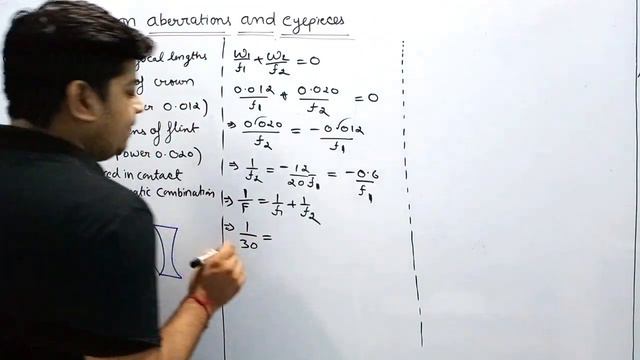 on aberrations and eyepieces
ocal lengths
of crown
er 0.012)
ens of flint
power 0.020)
ed in contact
atic Combination
ω₁/f₁ + ω₂/f₂ = 0
0.012/f₁ + 0.020/f₂ = 0
⇒ 0.020/f₂ = -0.012/f₁
⇒ 1/f₂ = -12/20f₁ = -0.6/f₁
⇒ 1/F = 1/f₁ + 1/f₂
⇒ 1/30 =